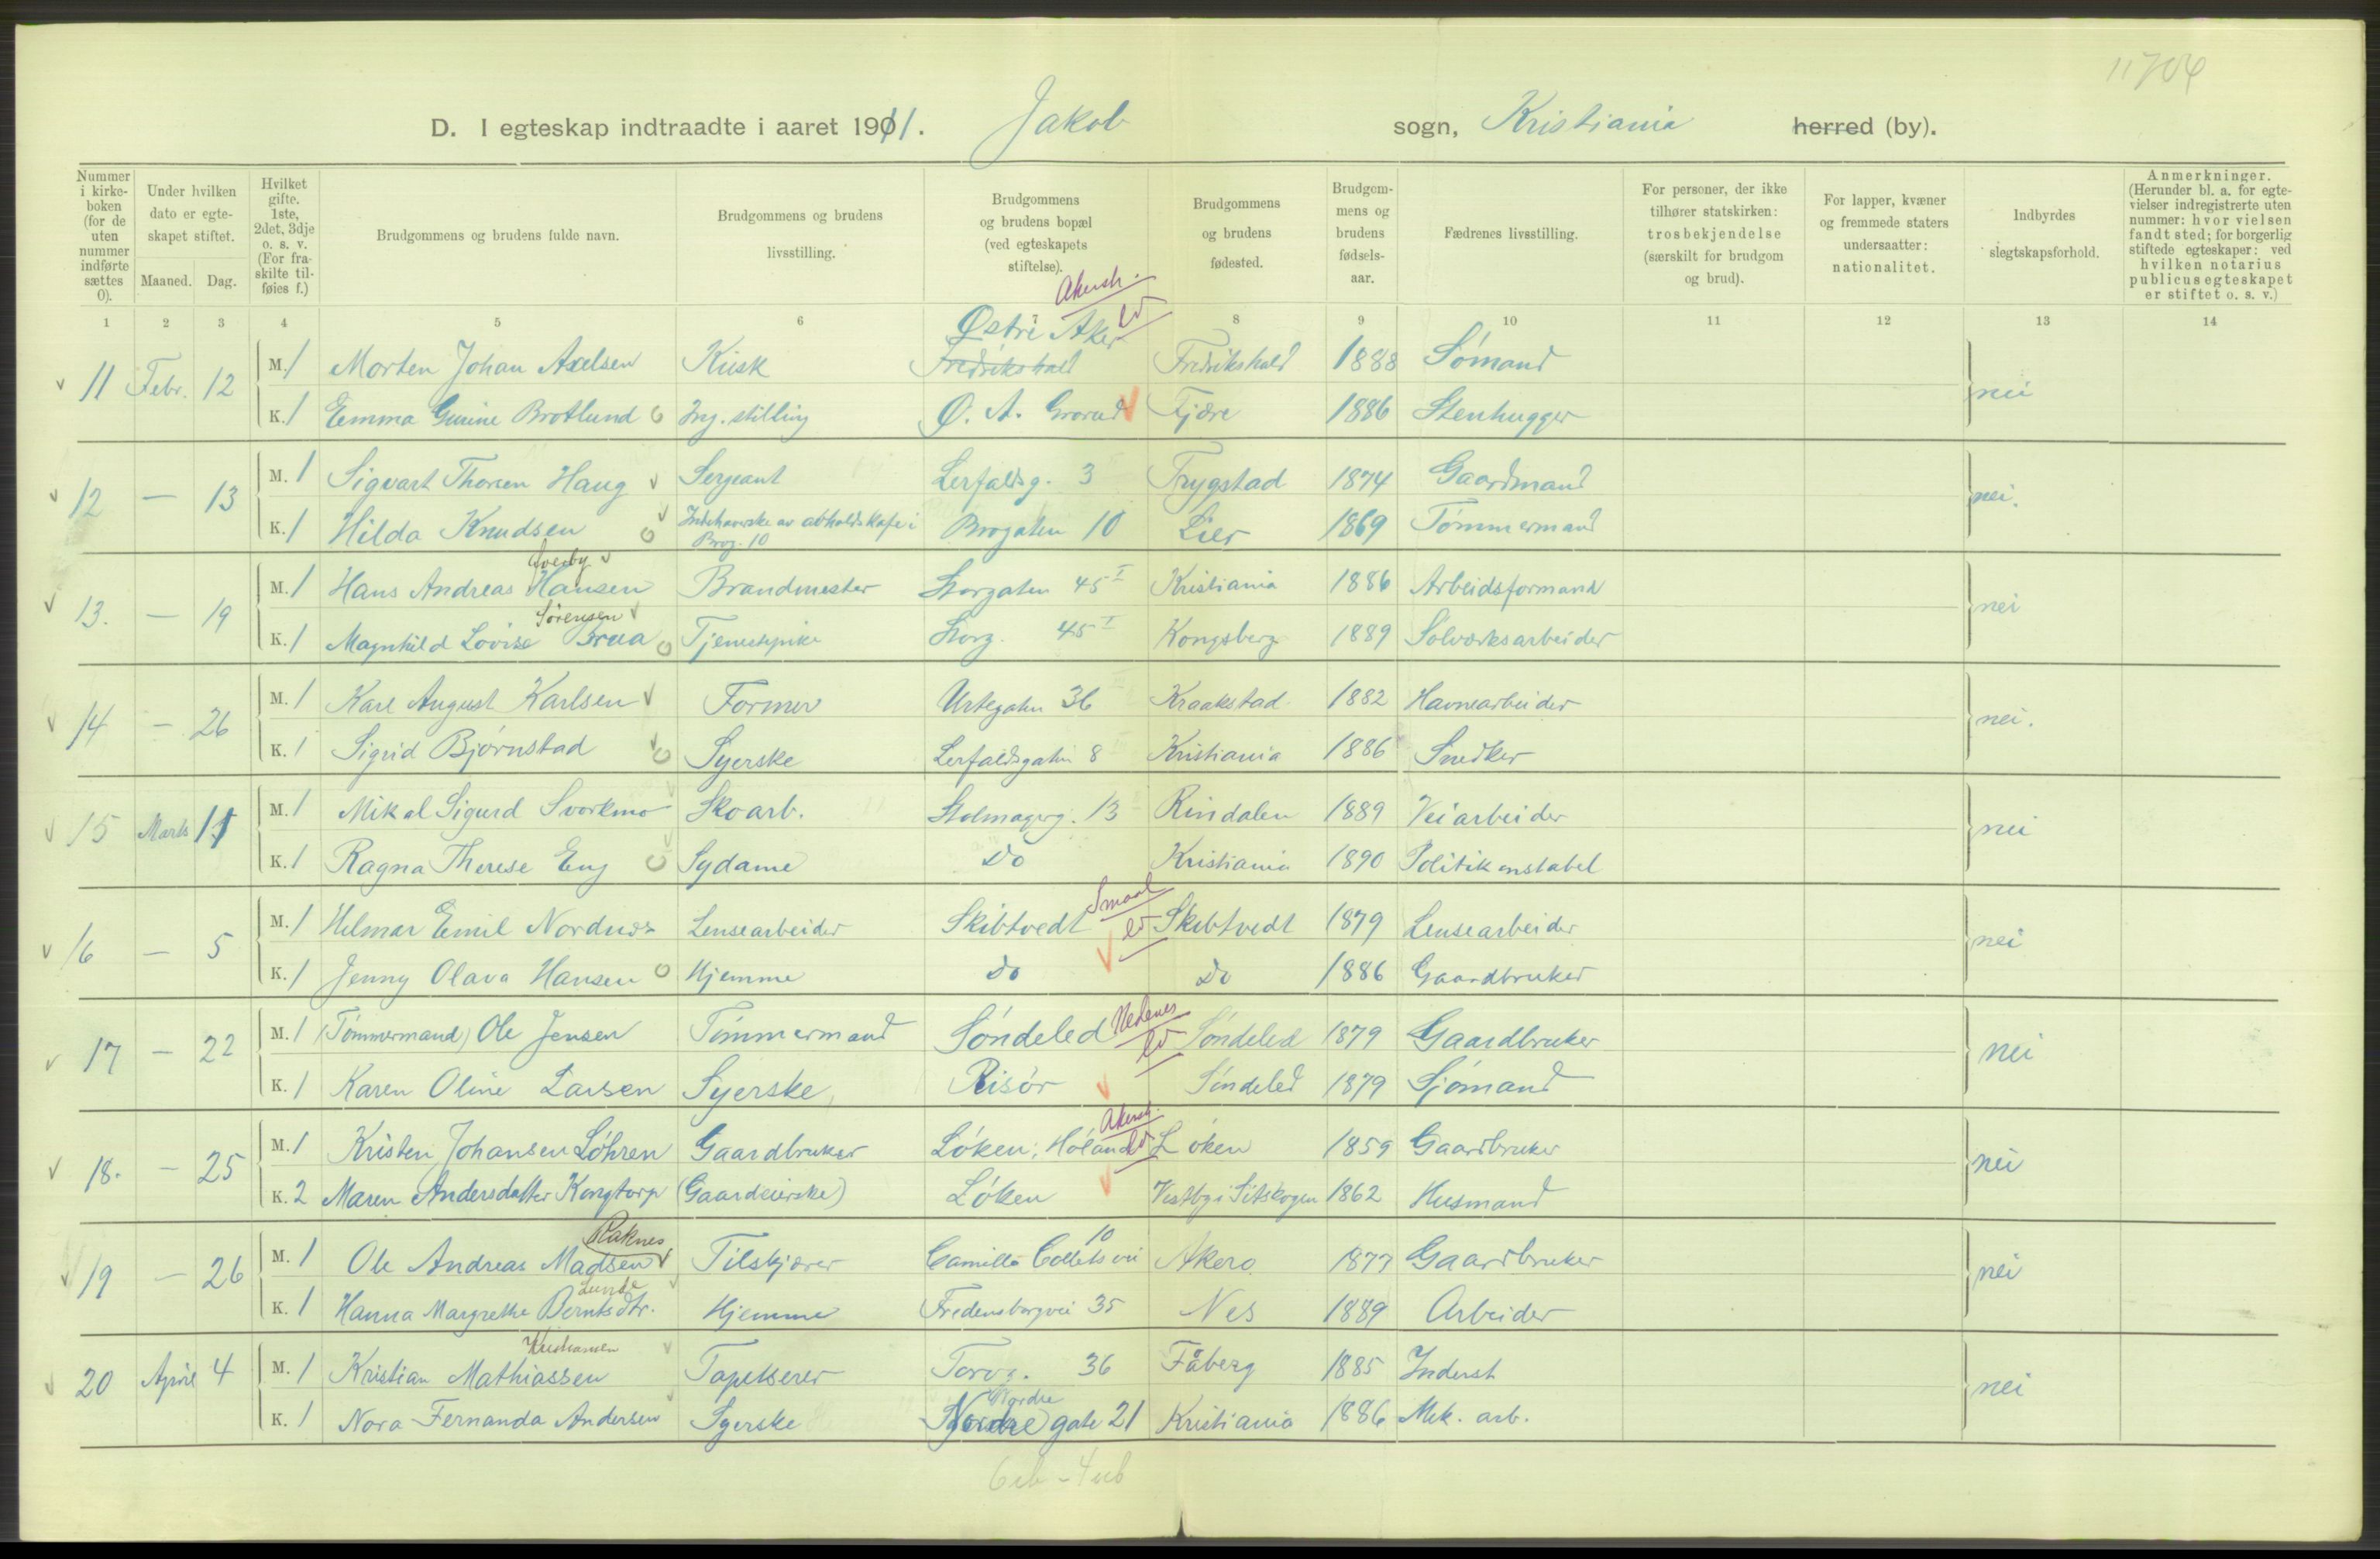 11704
D. I egteskap indtraadte i aaret 1911. Jakob sogn, Kristiania herred (by).
Nummer i kirkeboken (for de uten nummer indførte sættes 0).
Under hvilken dato er egteskapet stiftet.
Maaned. Dag.
Hvilket gifte. 1ste, 2det, 3dje o. s. v. (For fraskilte tilføies f.)
Brudgommens og brudens fulde navn.
Brudgommens og brudens livsstilling.
Brudgommens og brudens bopæl (ved egteskapets stiftelse).
Brudgommens og brudens fødested.
Brudgommens og brudens fødselsaar.
Fædrenes livsstilling.
For personer, der ikke tilhører statskirken: trosbekjendelse (særskilt for brudgom og brud).
For lapper, kvæner og fremmede staters undersaatter: nationalitet.
Indbyrdes slegtskapsforhold.
Anmerkninger. (Herunder bl. a. for egtevielser indregistrerte uten nummer: hvor vielsen fandt sted; for borgerlig stiftede egteskaper: ved hvilken notarius publicus egteskapet er stiftet o. s. v.)
1 2 3 4 5 6 8 9 10 11 12 13 14
Akersh.
Østre Aker
11 Febr. 12 M. 1 Morten Johan Axelsen Kusk Fredrikshald Fredrikshald 1888 Sømand nei
K. 1 Emma Gurine Brotlund Ing. stilling Ø. A. Grorud Fjære 1886 Stenhugger
12 — 13 M. 1 Sigvart Thorsen Haug Sergeant Lerfaldsg. 3 Trygstad 1874 Gaardmand nei.
K. 1 Hilda Knudsen Indehaverske av avholdskafe i Brog. 10 Brogaten 10 Lier 1869 Tømmermand
13. — 19 M. 1 Hans Andreas Hansen Brandmester Storgaten 45 I Kristiania 1886 Arbeidsformand nei
Sørensen
K. 1 Magnhild Lovise Brua Tjenestepike Storg. 45 I Kongsberg 1889 Sølvverksarbeider
14 — 26 M. 1 Karl August Karlsen Former Urtegaten 36 Kraakstad 1882 Havnearbeider nei.
K. 1 Sigrid Bjørnstad Syerske Lerfaldsgaten 8 Kristiania 1886 Snedker
15 Marts 11 M. 1 Mikal Sigurd Svorkmo Skoarb. Stolmagerg. 13 Rindalen 1889 Veiarbeider nei
K. 1 Ragna Therese Eng Sydame Do Kristiania 1890 Politikonstabel
Smaal
16 — 5 M. 1 Hilmar Emil Nordnes Lensearbeider Skibtvedt Skibtvedt 1879 Lensearbeider nei
K. 1 Jenny Olava Hansen Hjemme do Do 1886 Gaardbruker
Nedenes
17 — 22 M. 1 (Tømmermand) Ole Jensen Tømmermand Søndeled Søndeled 1879 Gaardbruker nei
K. 1 Karen Oline Larsen Syerske Risør Søndeled 1879 Sjømand
Akersh.
18. — 25 M. 1 Kristen Johansen Løhren Gaardbruker Løken, Høland Løken 1859 Gaardbruker nei
K. 2 Maren Andersdatter Kongtorp (Gaardeierske) Løken Vestby i Sitskogen 1862 Husmand
Raknes
19 — 26 M. 1 Ole Andreas Madsen Tilskjærer Camilla Colletsvei 10 Akero 1877 Gaardbruker nei
Lunde
K. 1 Hanna Margrethe Berntsdtr. Hjemme Fredensborgvei 35 Nes 1889 Arbeider
Kristiansen
20 April 4 M. 1 Kristian Mathiassen Tapetserer Torvg. 36 Fåberg 1885 Inderst nei
Nordre
K. 1 Nora Fernanda Andersen Syerske Nordre gate 21 Kristiania 1886 Mek. arb.